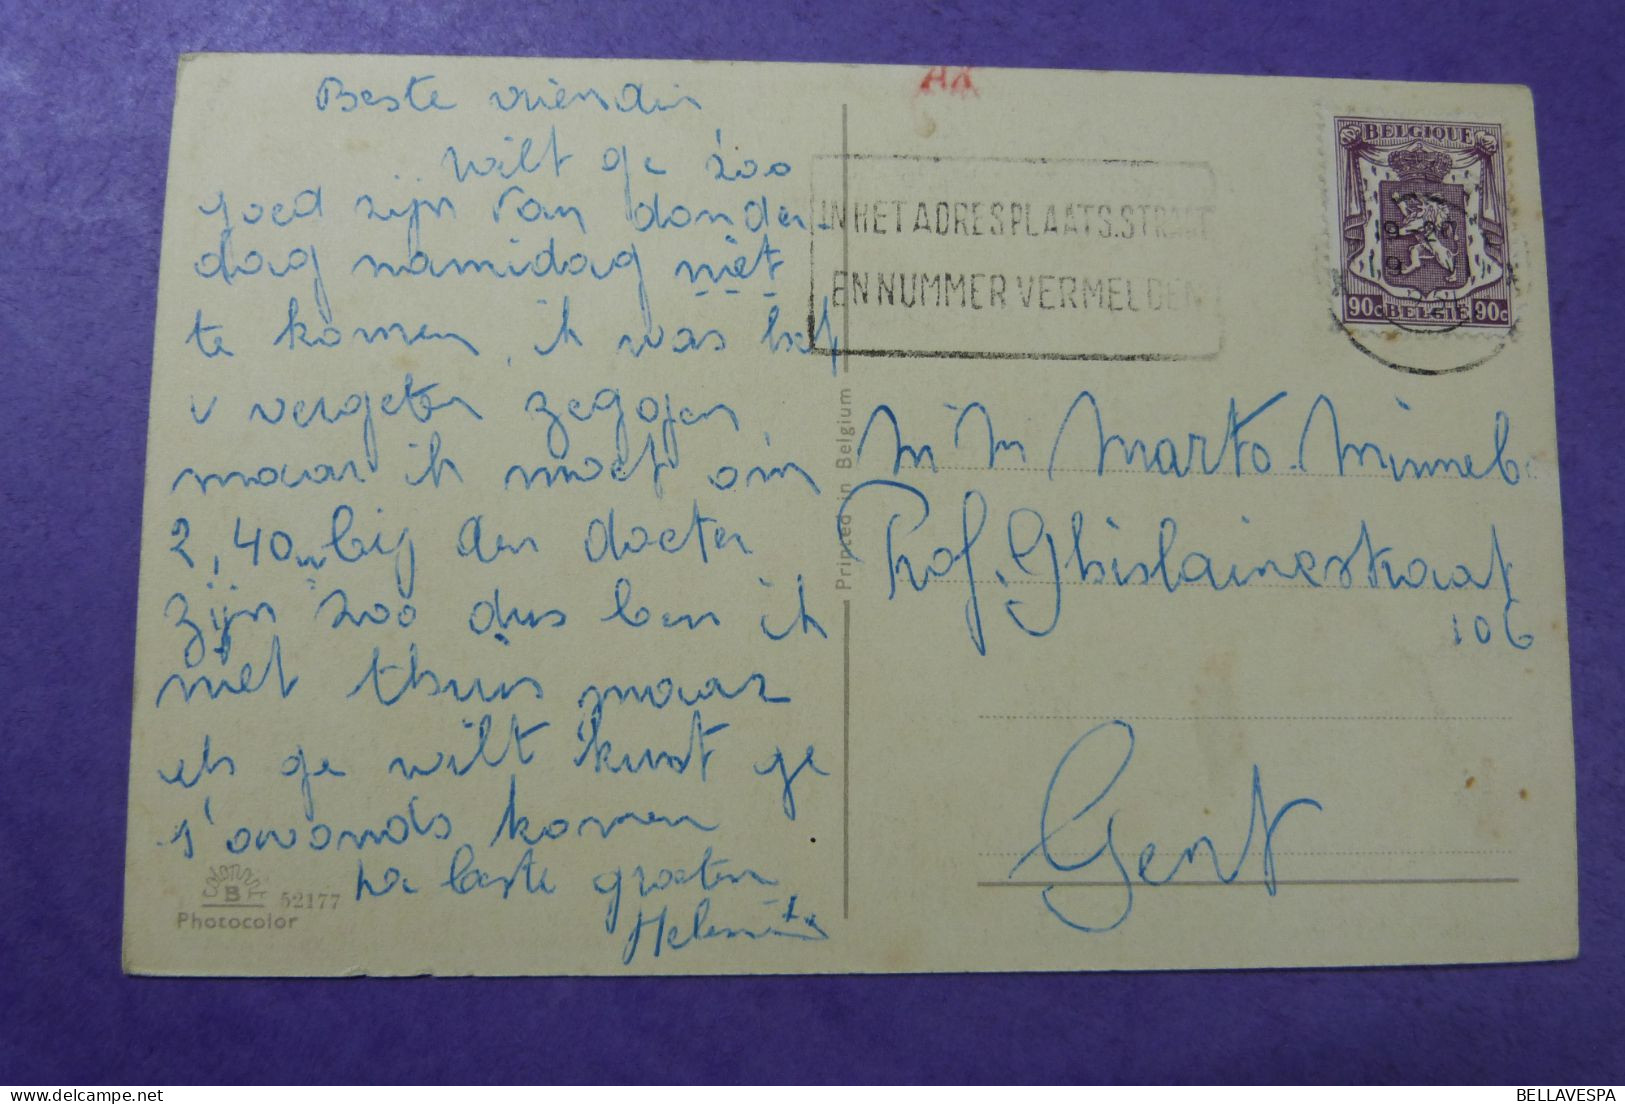 Beste vriendin
Wilt ge zoo
goed zijn van donder
dag namidag niet
te komen, ik was het
u vergeten zeggen
maar ik moet om
2,40u bij den docter
zijn zoo dus ben ik
niet thuis maar
als ge wilt kunt ge
s'avonds komen
de beste groeten
B 52177
Photocolor
Printed in Belgium
IN HET ADRES PLAATS.STRAAT
EN NUMMER VERMELDEN
BELGIQUE
19-20
90c BELGIË 90c
Prof. Ghislainestraat
106
Gent
BELLAVESPA